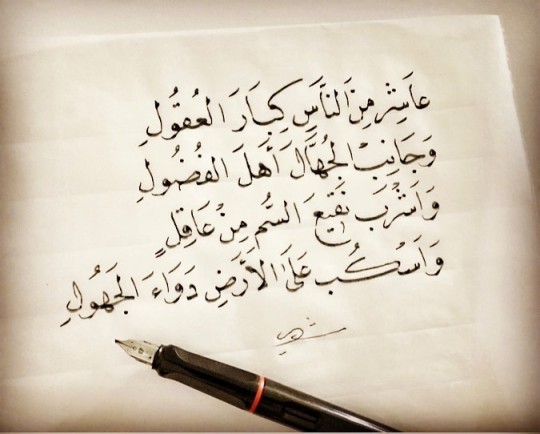 عَاشِرْ مِنَ النَّاسِ كِبَارَ العُقُولِ
وَجَانِبْ الجُهَّالَ أَهْلَ الفُضُولِ
وَاشْرَبْ نَقِيعَ السُّمِ مِنْ عَاقِلٍ
وَاسْكُب عَلَى الأَرْضِ دَوَاءَ الجَهُولِ